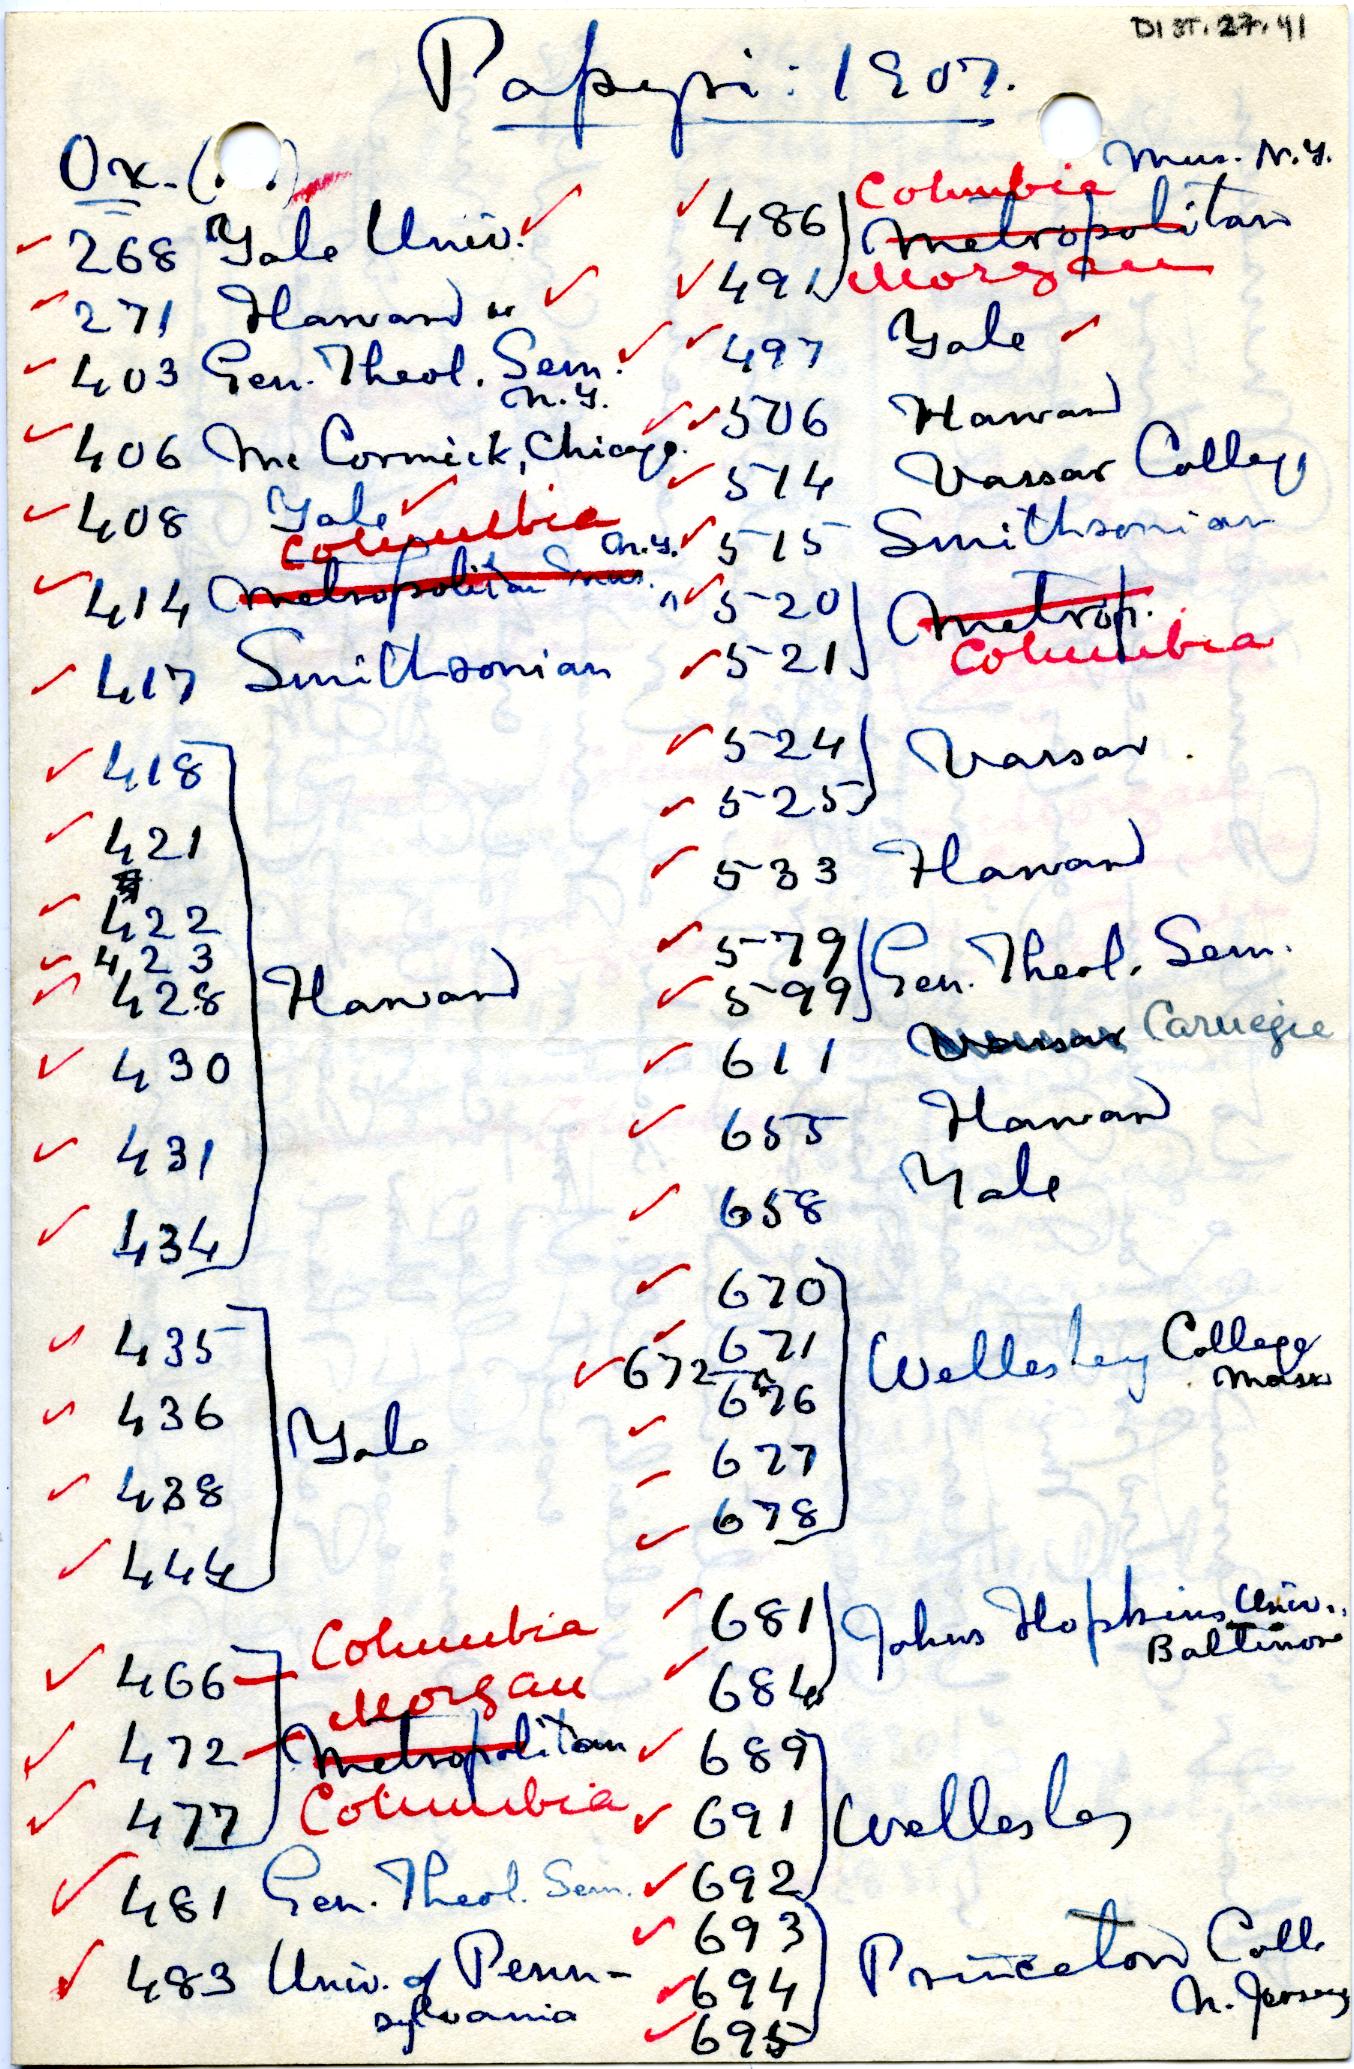 DIST. 27.41
Papyri: 1907.
Ox. (
268 Yale Univ.
271 Harvard "
403 Gen. Theol. Sem.
N.Y.
406 Mc Cormick, Chicago.
408 Yale
Columbia
414 Metropolitan Mus. N.Y.
417 Smithsonian
418
421
422
423
428
Harvard
430
431
434
435
436
Yale
438
444
Columbia
466
Morgan
472 Metropolitan
477 Columbia
481 Gen. Theol. Sem.
483 Univ. of Penn-
sylvania
Columbia Mus. N.Y.
486 Metropolitan
491 Morgan
497 Yale
506 Harvard
514 Vassar College
515 Smithsonian
" 520 Metrop.
521 Columbia
524 Vassar.
525
533 Harvard
579 Gen. Theol. Sem.
599
611 Vassar Carnegie
655 Harvard
658 Yale
670
671
672 Wellesley College
Mass
676
677
678
681 Johns Hopkins Univ.,
Baltimore
684
689
691 Wellesley
692
693
694 Princeton Coll
N. Jersey
695